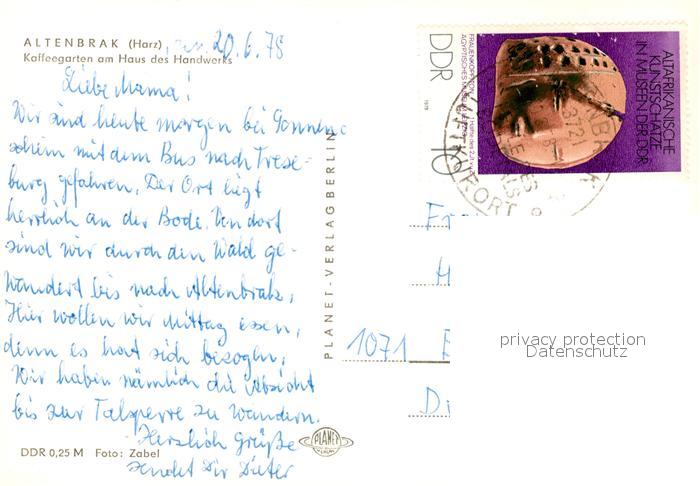 ALTENBRAK (Harz), den 20.6.78
Kaffeegarten am Haus des Handwerks
Liebe Mama!
Wir sind heute morgen bei Sonnen-
schein mit dem Bus nach Trese-
burg gefahren. Der Ort liegt
herrlich an der Bode. Von dort
sind wir durch den Wald ge-
wandert bis nach Altenbrak.
Hier wollen wir Mittag essen,
denn es hat sich bezogen.
Wir haben nämlich die Absicht
bis zur Talsperre zu wandern.
Herzlich Grüße
sendet Dir Dieter
DDR 0,25 M Foto: Zabel
PLANET-VERLAG BERLIN
PLANET
VERLAG
DDR
10
1978
ALTAFRIKANISCHE
KUNSTSCHÄTZE
IN MUSEEN DER DDR
KURORT
Fr
H
1071 B
Di
privacy protection
Datenschutz